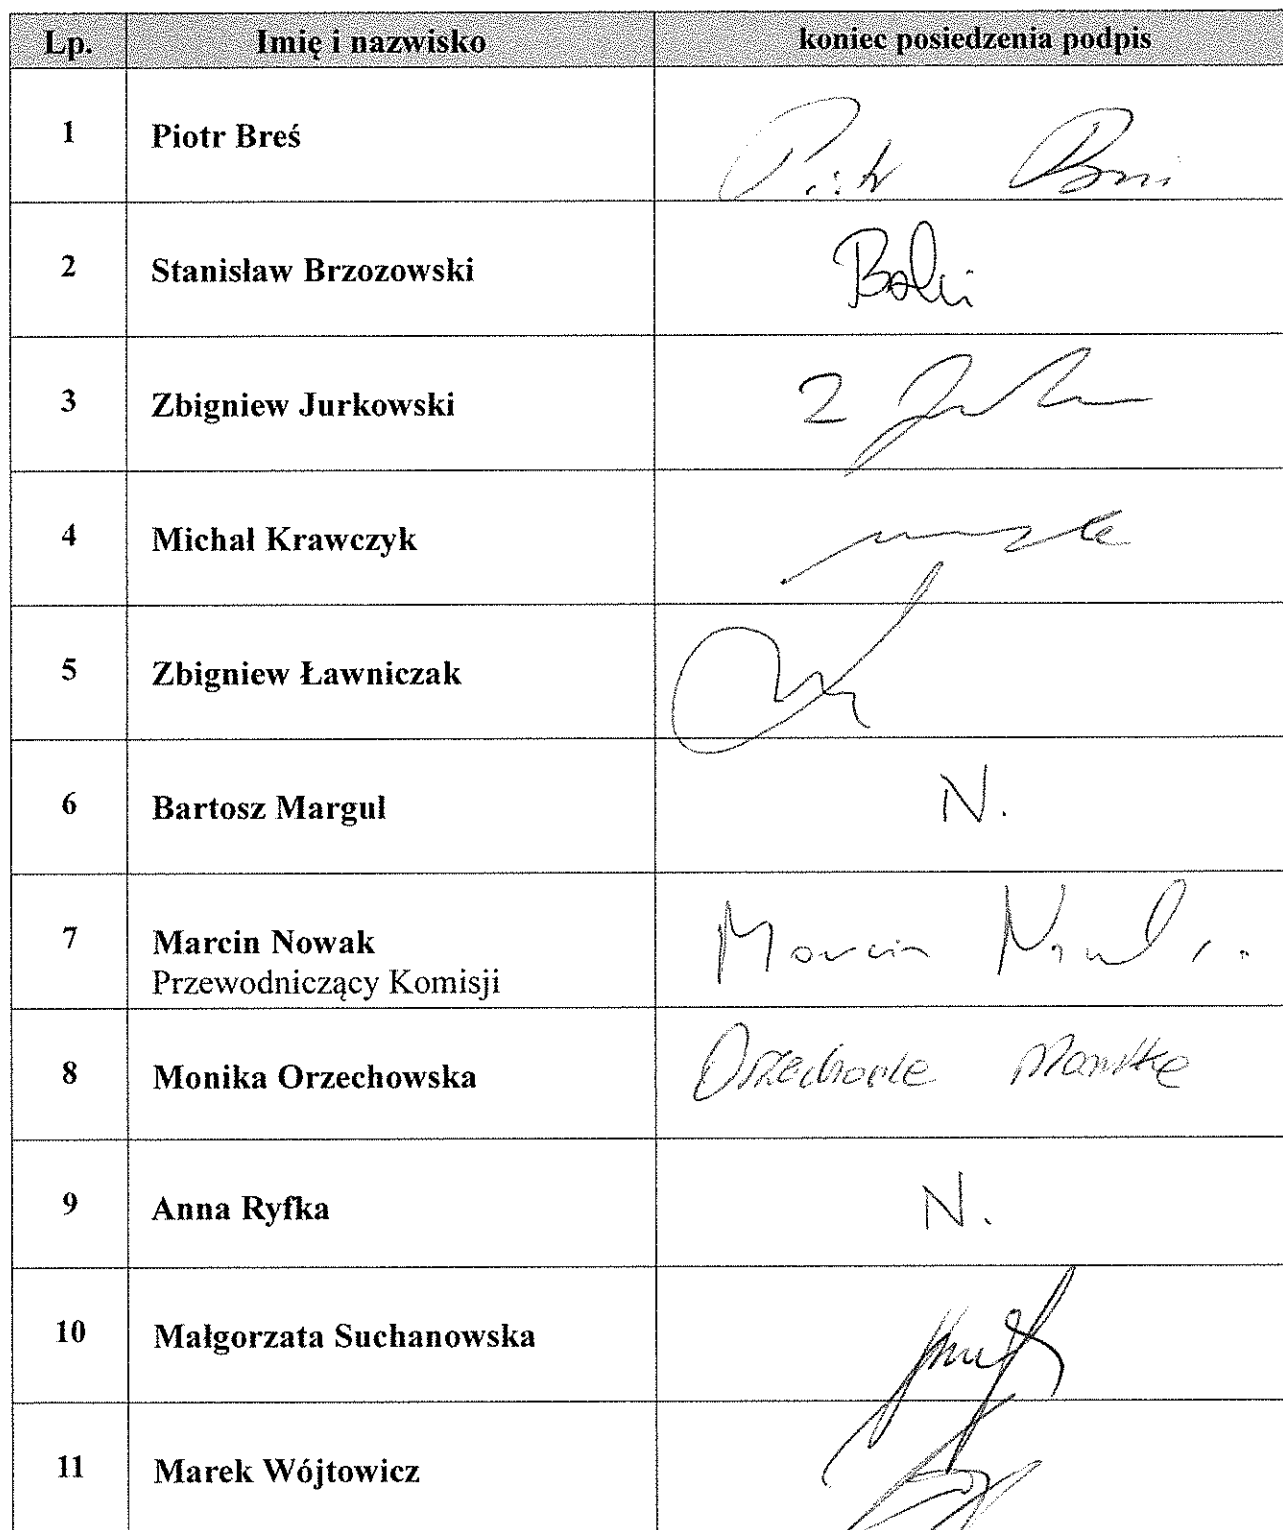 Lp. Imię i nazwisko koniec posiedzenia podpis
1 Piotr Breś Piotr
2 Stanisław Brzozowski
3 Zbigniew Jurkowski
4 Michał Krawczyk
5 Zbigniew Ławniczak
6 Bartosz Margul N.
7 Marcin Nowak Marcin
Przewodniczący Komisji
8 Monika Orzechowska
9 Anna Ryfka N.
10 Małgorzata Suchanowska
11 Marek Wójtowicz